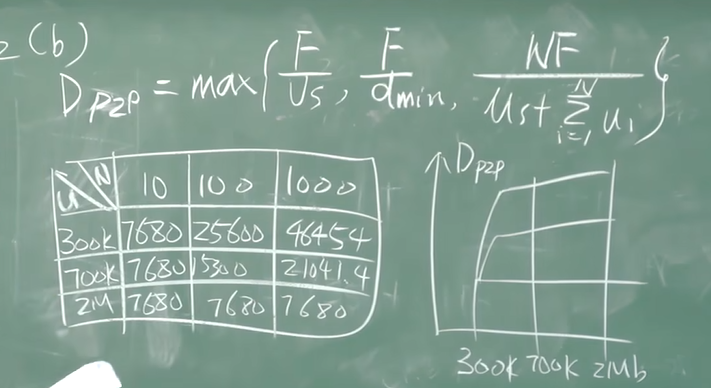 2 (b)
D_P2P = max{ F/Us, F/dmin, NF/(Ust Σ_{i=1}^{N} ui) }
u\N 10 100 1000
300k 7680 25600 46454
700k 7680 15300 21041.4
2M 7680 7680 7680
D_P2P
300k 700k 2Mb